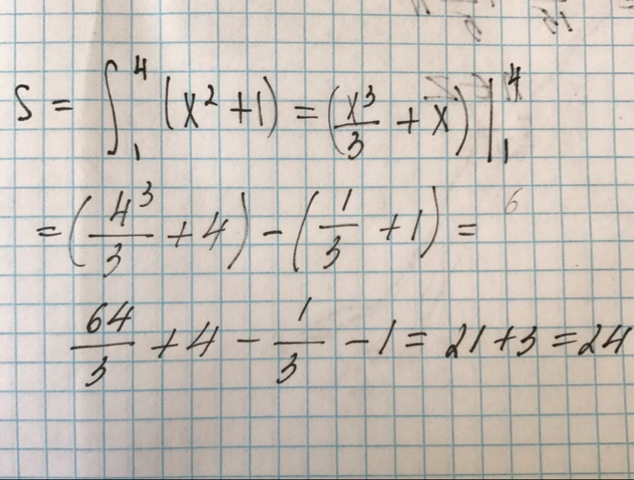 S = ∫₁⁴ (x² + 1) = (x³/3 + x) |₁⁴
= (4³/3 + 4) - (1/3 + 1) =
64/3 + 4 - 1/3 - 1 = 21 + 3 = 24